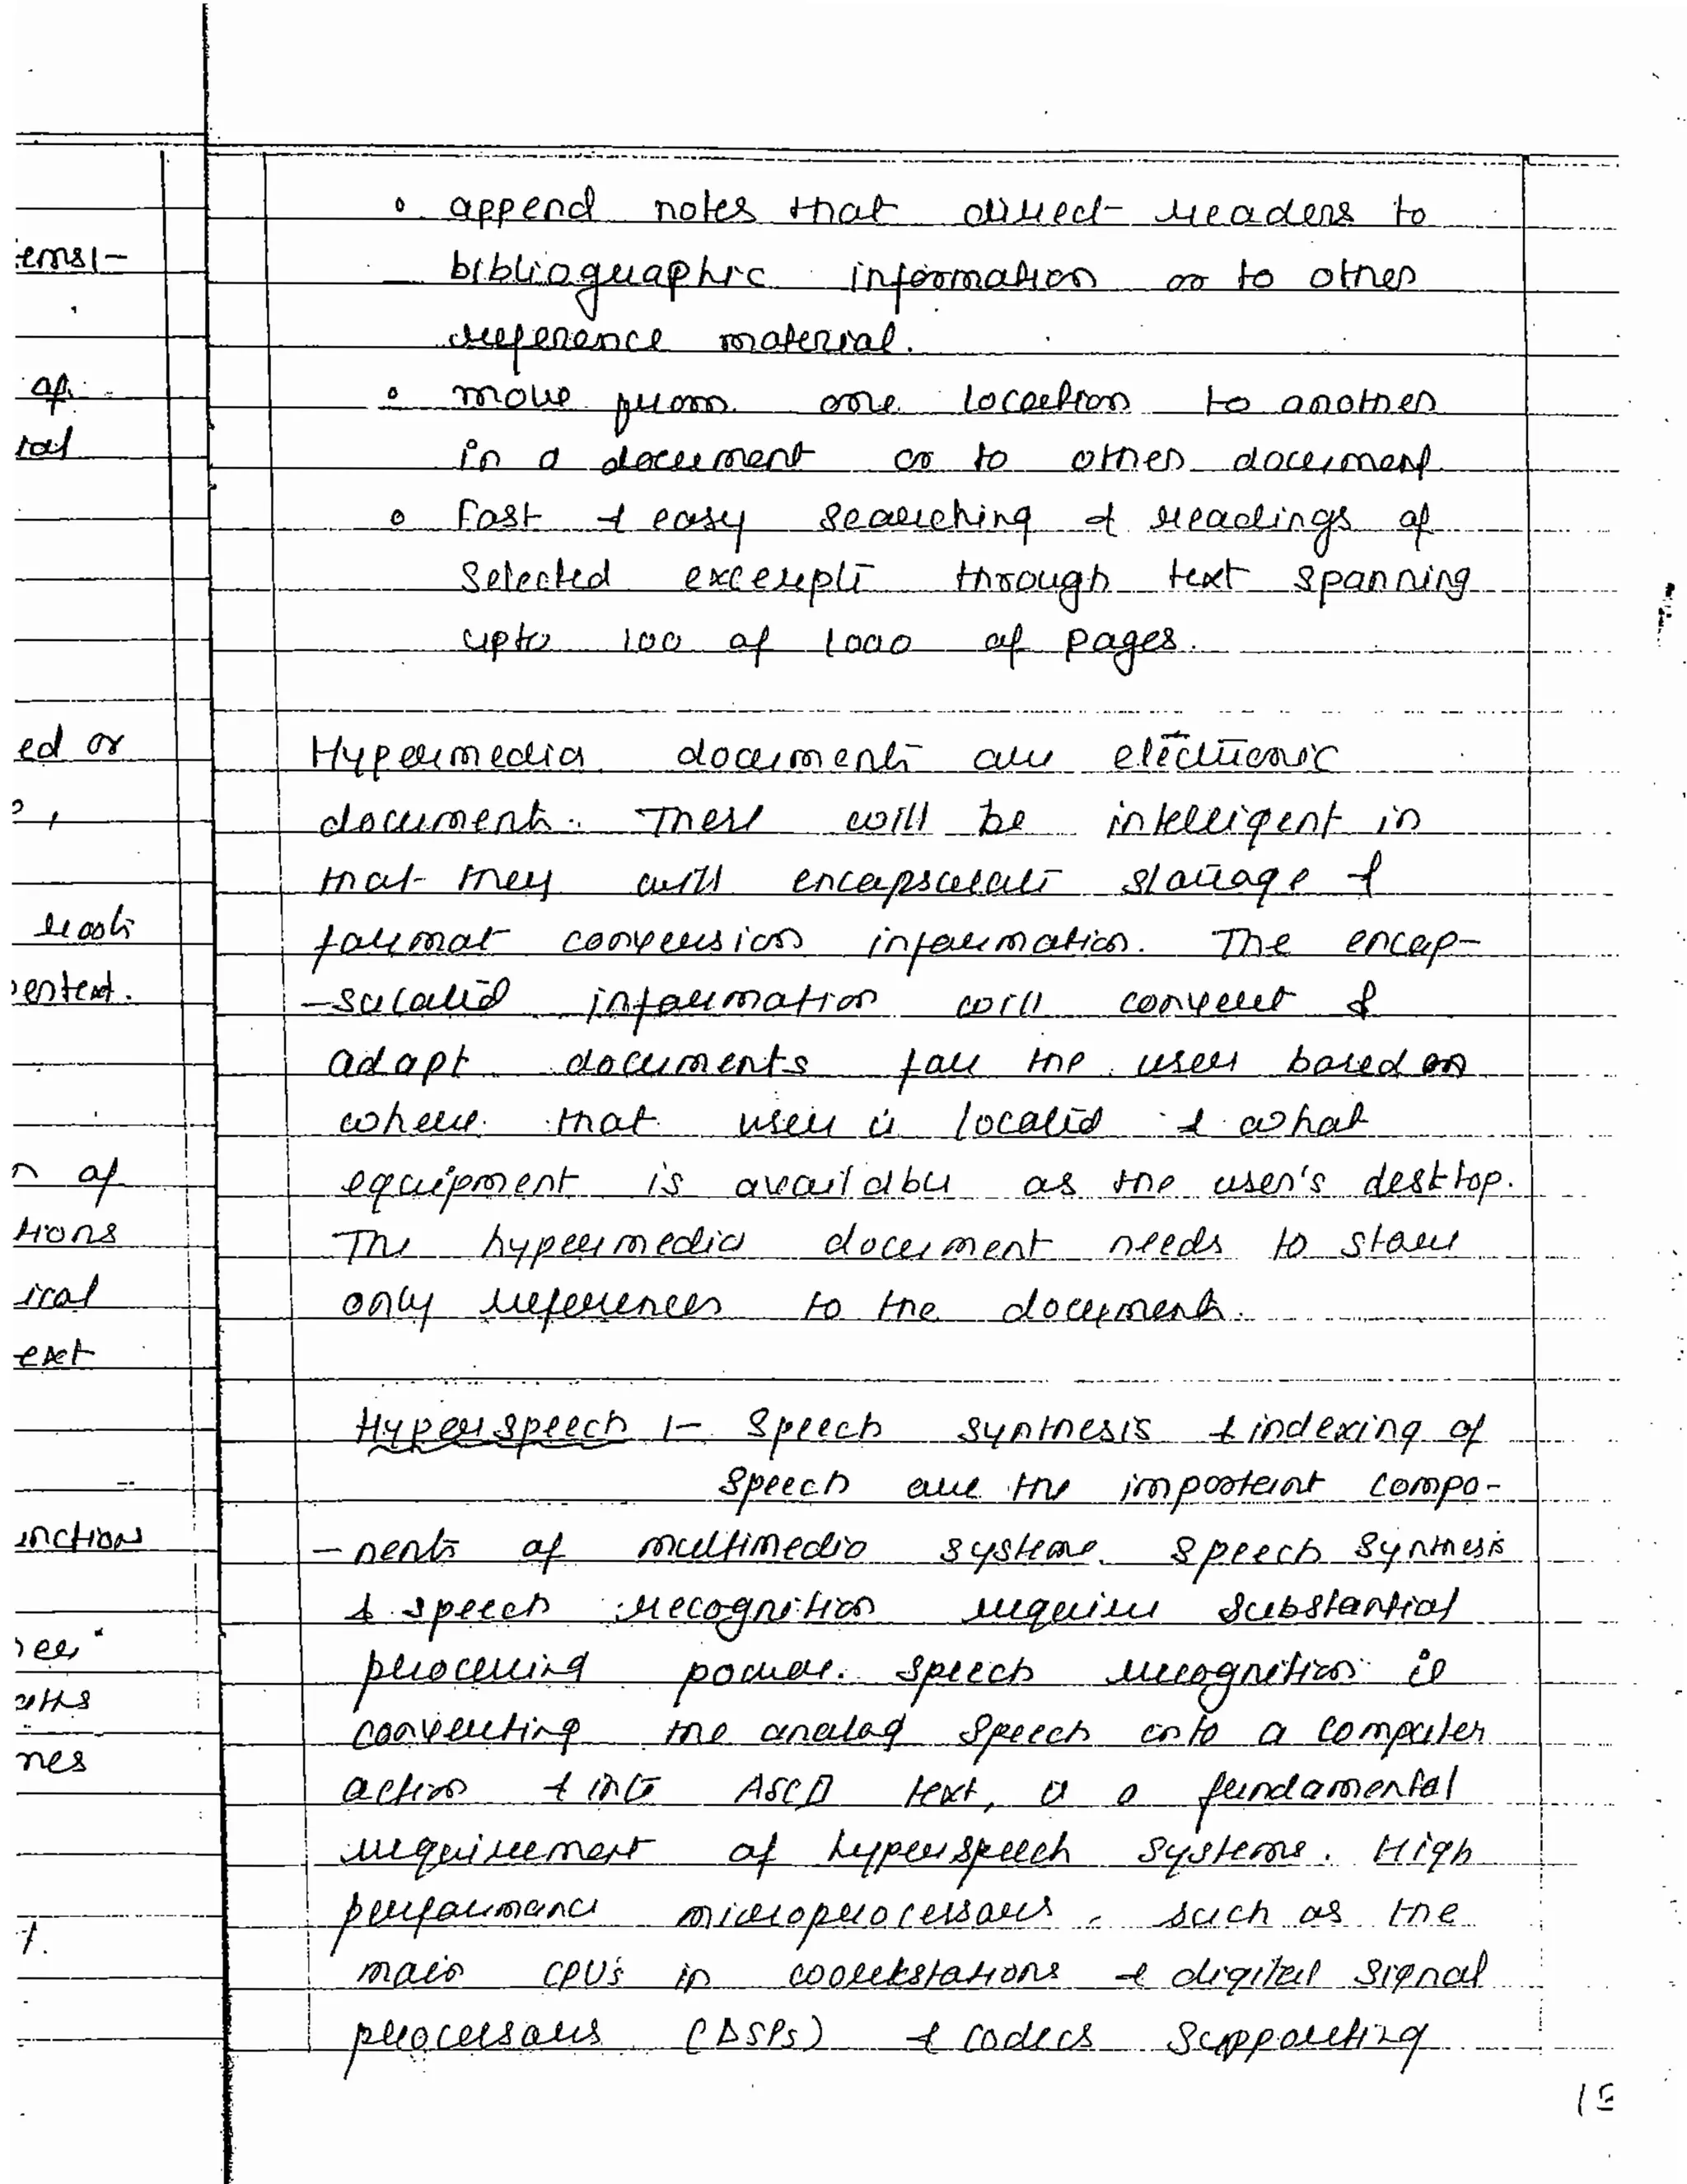 ems:-
of
tal
ed or
,
roots
pertext.
n of
tions
ical
ext
unction
nes
t.
o append notes that direct readers to
bibliographic information or to other
reference material.
o move from one location to another
in a document or to other document
o Fast & easy searching & readings of
selected excerpts through text spanning
upto 100 of 1000 of pages.
Hypermedia documents are electronic
documents. These will be intelligent in
that they will encapsulate storage &
format conversion information. The encap-
-sulated information will convert &
adapt documents for the user based on
where that user is located & what
equipment is available as the user's desktop.
The hypermedia document needs to store
only references to the documents.
Hyperspeech :- Speech synthesis & indexing of
speech are the important compo-
-nents of multimedia systems. Speech synthesis
& speech recognition require substantial
processing power. Speech recognition is
converting the analog speech into a computer
action & into ASCII text, is a fundamental
requirement of hyperspeech systems. High
performance microprocessors, such as the
main CPU's in workstations & digital signal
processors (DSPs) & codecs supporting